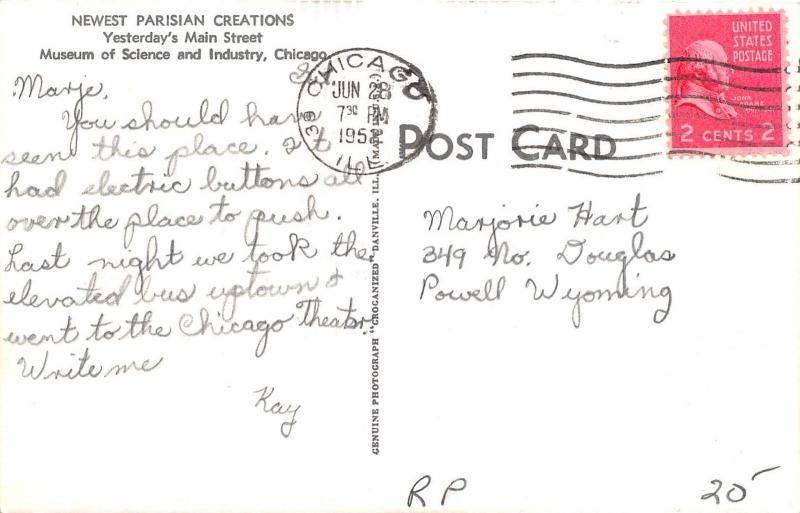 NEWEST PARISIAN CREATIONS
Yesterday's Main Street
Museum of Science and Industry, Chicago
Marje,
You should have
seen this place. It
had electric buttons all
over the place to push.
Last night we took the
elevated bus uptown &
went to the Chicago Theater.
Write me
Kay
CHICAGO
JUN 28
7 30 PM
195
ILL.
GENUINE PHOTOGRAPH "GROGANIZED" DANVILLE, ILL.
POST CARD
UNITED
STATES
POSTAGE
JOHN
ADAMS
2 CENTS 2
Marjorie Hart
349 No. Douglas
Powell Wyoming
RP
20